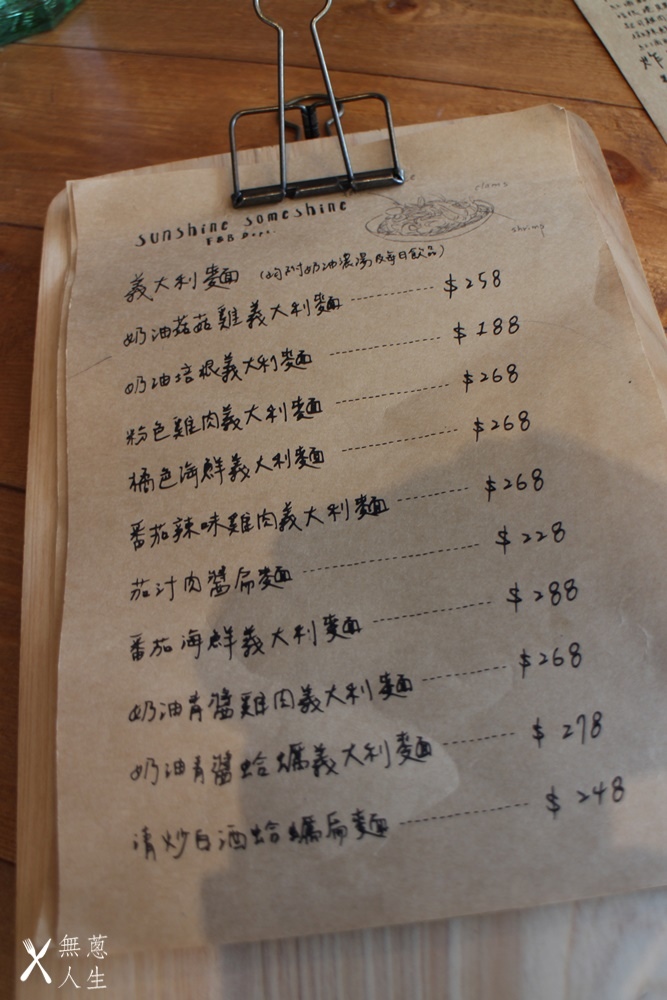 sunshine someshine
F&B Dept.
clams
shrimp
義大利麵 (均附奶油濃湯及每日飲品)
奶油菇菇雞義大利麵 $258
奶油培根義大利麵 $188
粉色雞肉義大利麵 $268
橘色海鮮義大利麵 $268
番茄辣味雞肉義大利麵 $268
茄汁肉醬扁麵 $228
番茄海鮮義大利麵 $288
奶油青醬雞肉義大利麵 $268
奶油青醬蛤蠣義大利麵 $278
清炒白酒蛤蠣扁麵 $248
無蔥
人生